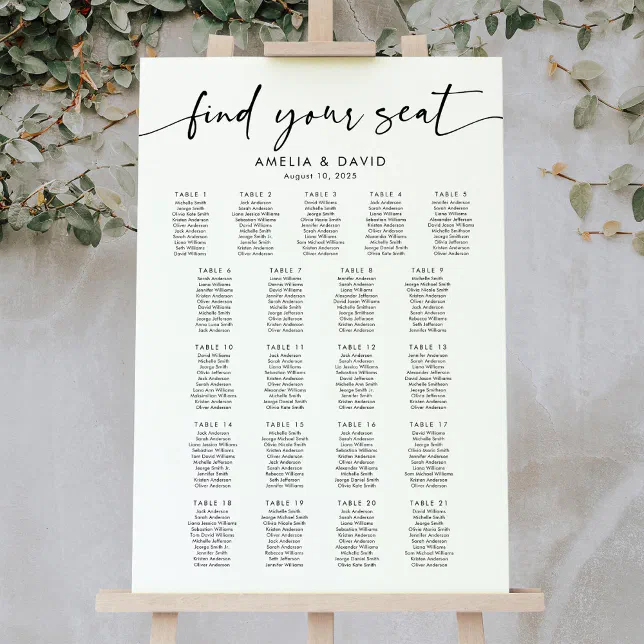 find your seat
AMELIA & DAVID
August 10, 2025
TABLE 1
Michelle Smith
Jeorge Smith
Olivia Kate Smith
Kristen Anderson
Oliver Anderson
Jack Anderson
Sarah Anderson
Liana Williams
Seb Williams
David Williams
TABLE 2
Jack Anderson
Sarah Anderson
Liana Jessica Williams
Sebastian Williams
David Williams
Michelle Smith
Jeorge Smith Jr.
Jennifer Smith
Kristen Anderson
Oliver Anderson
TABLE 3
David Williams
Michelle Smith
Jeorge Smith
Olivia Marie Smith
Jennifer Anderson
Kristen Anderson
Oliver Anderson
Liana Williams
Sam Michael Williams
Kristen Anderson
TABLE 4
Jack Anderson
Sarah Anderson
Liana Williams
Sebastian Williams
Kristen Anderson
Oliver Anderson
Michelle Smith
Jeorge Smith
Jeorge Daniel Smith
Olivia Kate Smith
TABLE 5
Jennifer Anderson
Kristen Anderson
Liana Williams
Alexander Jefferson
David Jason Williams
Michelle Smithson
Jeorge Smithson
Sarah Anderson
Kristen Anderson
Oliver Anderson
TABLE 6
Sarah Anderson
Liana Williams
Jennifer Williams
Kristen Anderson
Oliver Anderson
David Williams
Michelle Jefferson
Jeorge Jefferson
Anna Luna Smith
Jack Anderson
TABLE 7
Liana Williams
Dennis Williams
David Williams
Jennifer Anderson
Kristen Anderson
Oliver Anderson
Michelle Smith
Jeorge Smith
Olivia Jefferson
Kristen Anderson
Oliver Anderson
TABLE 8
Jennifer Anderson
Kristen Anderson
Liana Williams
Alexander Jefferson
David Jason Williams
Michelle Smithson
Jeorge Smithson
Sarah Anderson
Kristen Anderson
Oliver Anderson
TABLE 9
Michelle Smith
Jeorge Michael Smith
Olivia Nicole Smith
Kristen Anderson
Oliver Anderson
Jack Anderson
Sarah Anderson
Rebecca Williams
Seth Jefferson
Jennifer Williams
TABLE 10
David Williams
Michelle Smith
Jeorge Smith
Olivia Jefferson
Jack Anderson
Sarah Anderson
Lana Ann Williams
Maksimilian Williams
Kristen Anderson
Oliver Anderson
TABLE 11
Jack Anderson
Sarah Anderson
Liana Williams
Sebastian Williams
Kristen Anderson
Oliver Anderson
Alexander Williams
Michelle Smith
Jeorge Daniel Smith
Olivia Kate Smith
TABLE 12
Jack Anderson
Sarah Anderson
Lia Jessica Williams
Sebastian Williams
David Jefferson
Michelle Ann Smith
Jeorge Smith Jr.
Jennifer Smith
Kristen Anderson
Oliver Anderson
TABLE 13
Jennifer Anderson
Kristen Anderson
Liana Williams
Alexander Jefferson
David Jason Williams
Michelle Smithson
Jeorge Smithson
Olivia Jefferson
Kristen Anderson
Oliver Anderson
TABLE 14
Jack Anderson
Sarah Anderson
Liana Jessica Williams
Sebastian Williams
Tom David Williams
Michelle Jefferson
Jeorge Smith Jr.
Jennifer Smith
Kristen Anderson
Oliver Anderson
TABLE 15
Michelle Smith
Jeorge Michael Smith
Olivia Nicole Smith
Kristen Anderson
Oliver Anderson
Jack Anderson
Sarah Anderson
Rebecca Williams
Seth Jefferson
Jennifer Williams
TABLE 16
Jack Anderson
Sarah Anderson
Liana Williams
Sebastian Williams
Kristen Anderson
Oliver Anderson
Alexander Williams
Michelle Smith
Jeorge Daniel Smith
Olivia Kate Smith
TABLE 17
David Williams
Michelle Smith
Jeorge Smith
Olivia Maria Smith
Jennifer Anderson
Sarah Anderson
Liana Williams
Sam Michael Williams
Kristen Anderson
Oliver Anderson
TABLE 18
Jack Anderson
Sarah Anderson
Liana Jessica Williams
Sebastian Williams
Tom David Williams
Michelle Jefferson
Jeorge Smith Jr.
Jennifer Smith
Kristen Anderson
Oliver Anderson
TABLE 19
Michelle Smith
Jeorge Michael Smith
Olivia Nicole Smith
Kristen Anderson
Oliver Anderson
Jack Anderson
Sarah Anderson
Rebecca Williams
Seth Jefferson
Jennifer Williams
TABLE 20
Jack Anderson
Sarah Anderson
Liana Williams
Sebastian Williams
Kristen Anderson
Oliver Anderson
Alexander Williams
Michelle Smith
Jeorge Daniel Smith
Olivia Kate Smith
TABLE 21
David Williams
Michelle Smith
Jeorge Smith
Olivia Maria Smith
Jennifer Anderson
Sarah Anderson
Liana Williams
Sam Michael Williams
Kristen Anderson
Oliver Anderson